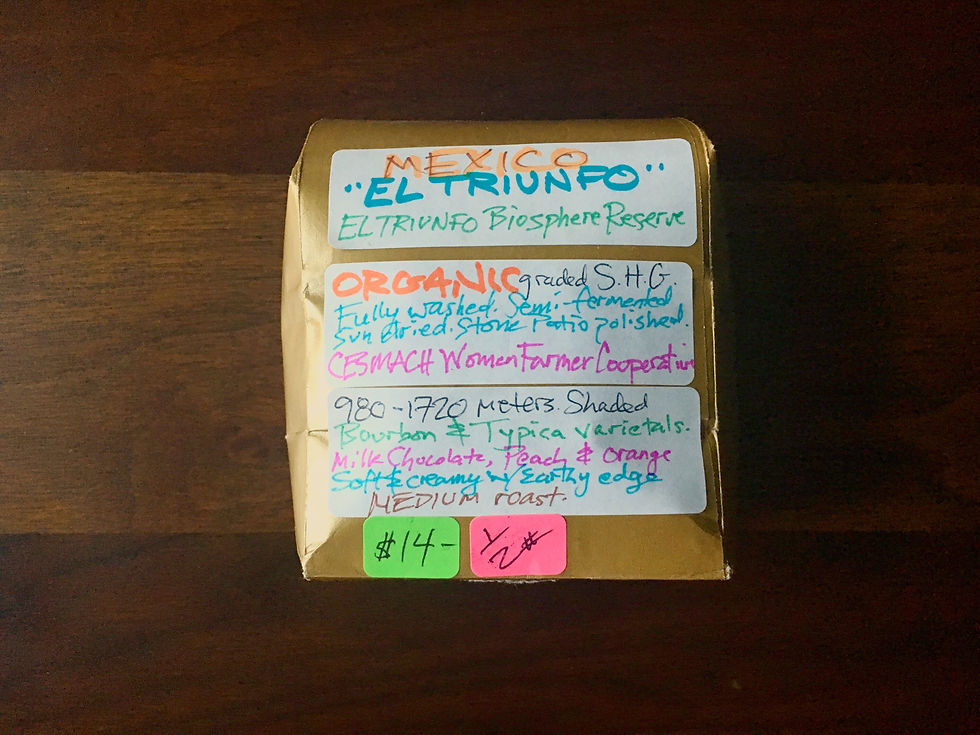 MEXICO
"EL TRIUNFO"
EL TRIUNFO Biosphere Reserve
ORGANIC graded S.H.G.
Fully washed. Semi-fermented
Sun dried. Stone ratio polished.
CESMACH Women Farmer Cooperative
980-1720 meters. Shaded
Bourbon & Typica varietals.
Milk Chocolate, Peach & Orange
Soft & creamy w/ Earthy edge
MEDIUM roast.
$14-
1/2#